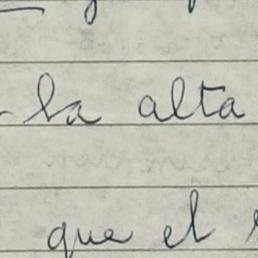 la alta
que el